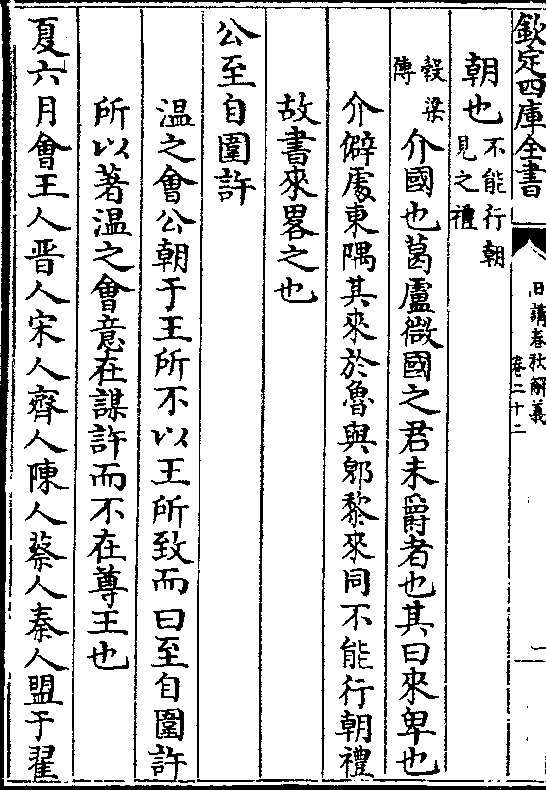 欽定四庫全書
日講春秋解義
卷二十二
一
朝也
不能行朝
見之禮
穀梁
傳
介國也葛盧微國之君未爵者也其曰來卑也
介僻處東隅其來於魯與郳黎來同不能行朝禮
故書來畧之也
公至自圍許
温之會公朝于王所不以王所致而曰至自圍許
所以著温之會意在謀許而不在尊王也
夏六月會王人晋人宋人齊人陳人蔡人秦人盟于翟